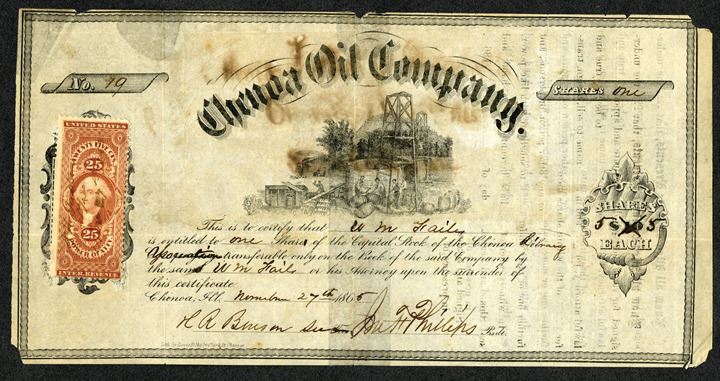 Chenoa Oil Company.
No. 19
SHARES one
UNITED STATES
TWENTY FIVE CENTS
25
25
POWER OF ATT'Y
INTER. REVENUE
SHARES
5 5
EACH
This is to certify that W M Fails
is entitled to one Share of the Capital Stock of the Chenoa
Association transferable only on the Book of the said Company by
the same W M Fails or his Attorney upon the surrender of
this certificate
Chenoa, Ill. November 27th 1865
H R Benson Jno F Phillips